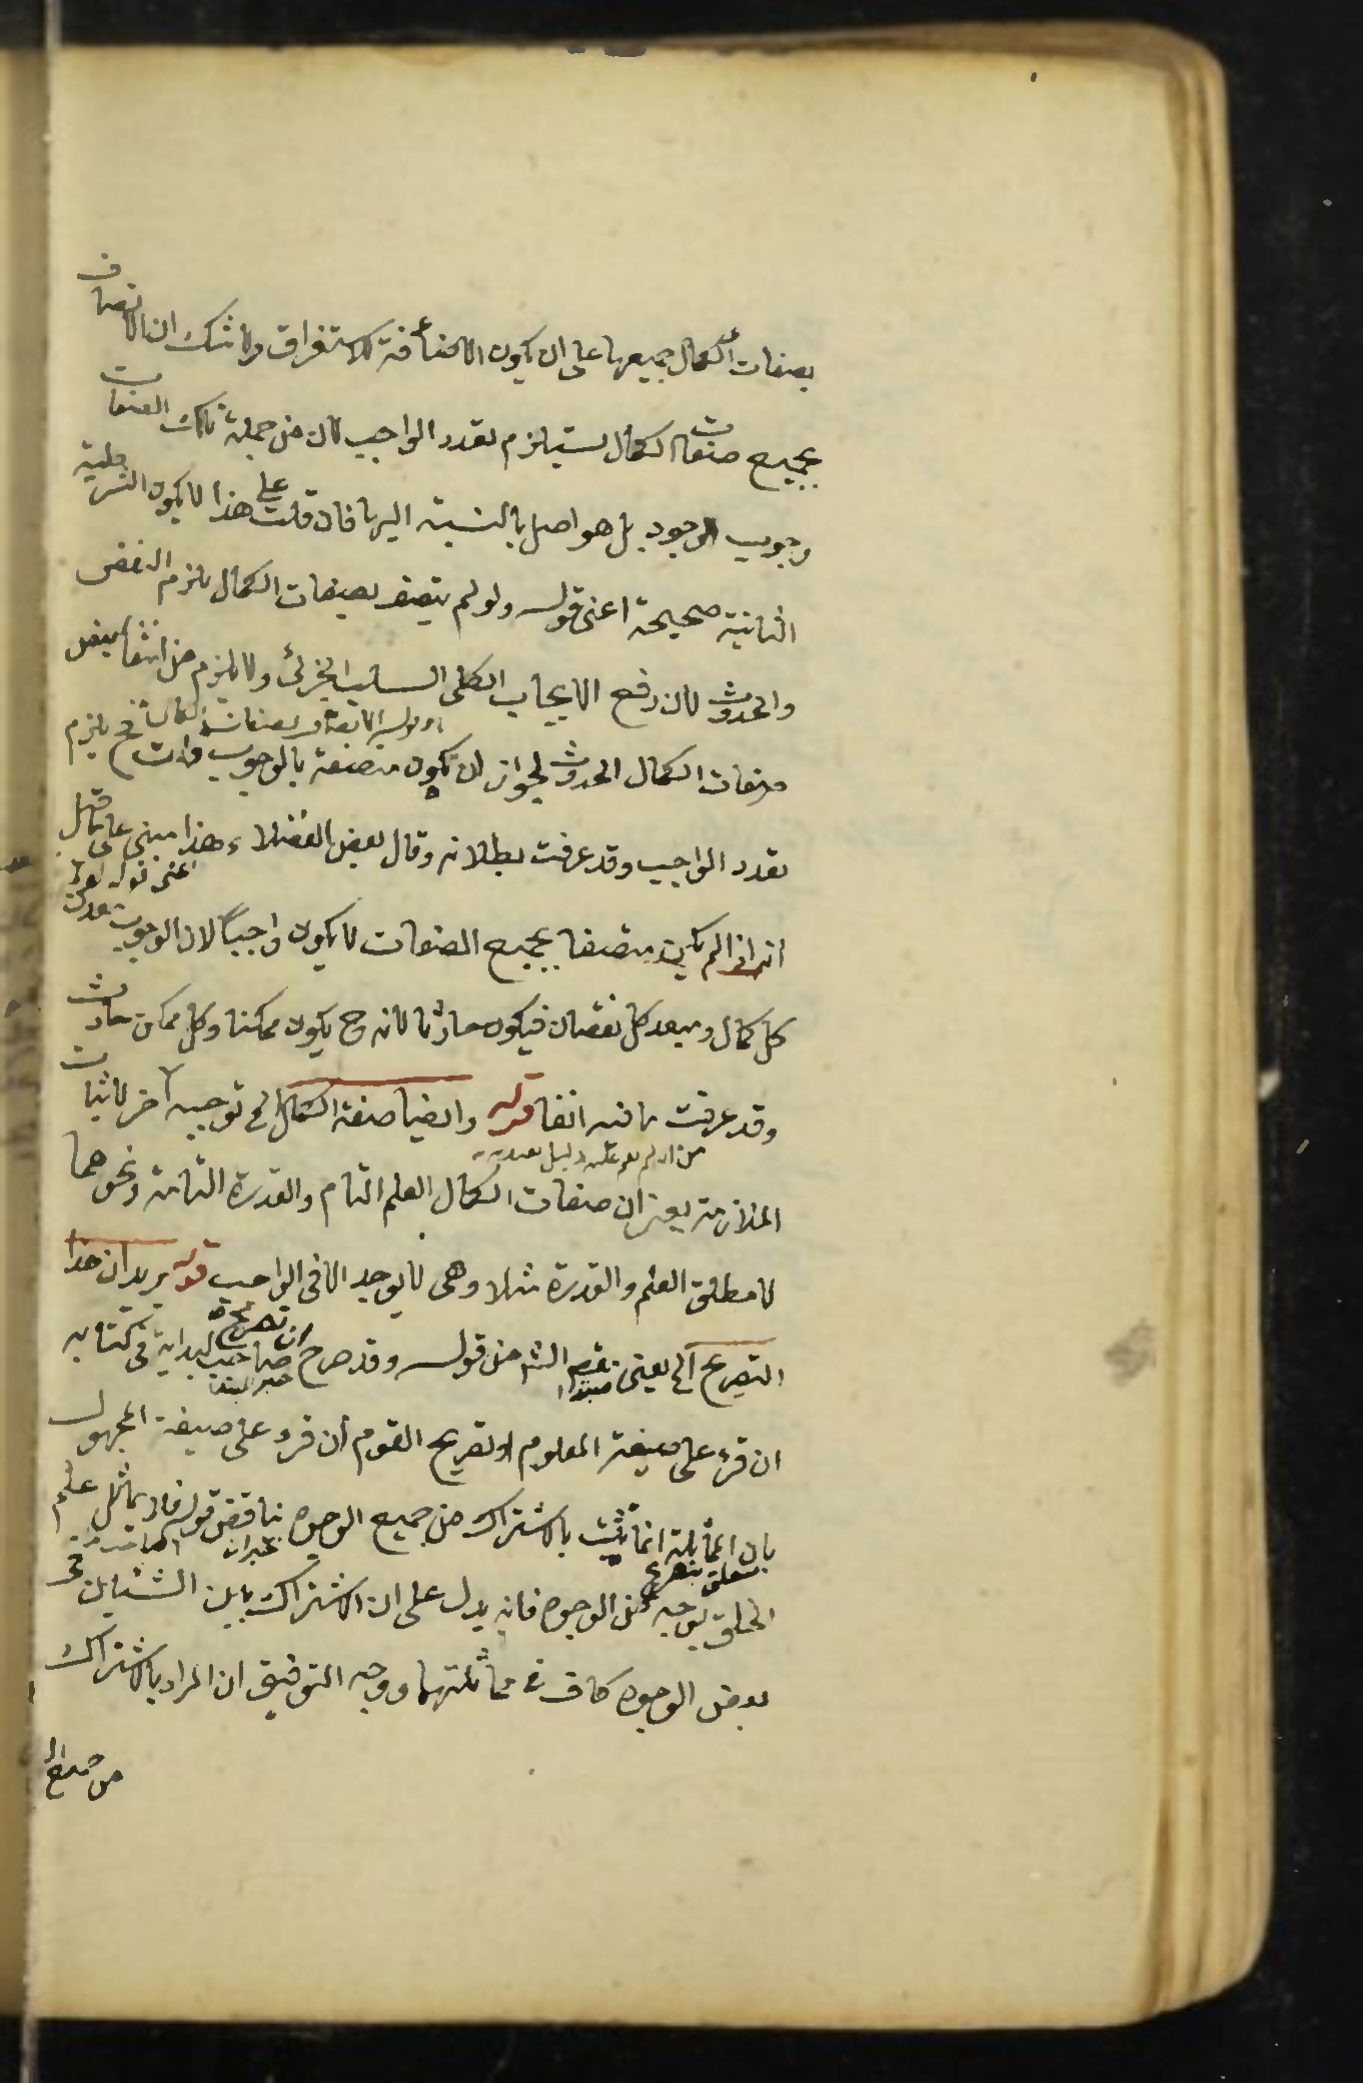 بصفات الكمال جميعها على ان يكون الاضافة للاستغراق ولا شك ان الاتصاف
بجميع صفات الكمال يستلزم تعدد الواجب لان من جملة تلك الصفات
وجوب الوجود بل هو اصل بالنسبة اليها فان قلت على هذا لا يكون الشرطية
الثانية صحيحة اعنى قوله ولو لم يتصف بصفات الكمال يلزم النقص
والحدوث لان رفع الايجاب الكلى السلب الجزئى ولا يلزم من انتفاء بعض
صفات الكمال الحدوث لجواز ان يكون متصفة بالوجوب قلت ح يلزم
تعدد الواجب وقد عرفت بطلانه وقال بعض الفضلاء وهذا مبنى على ما قيل
اعنى قوله
انه اذا لم يكن متصفا بجميع الصفات لا يكون واجباً لان الوجوب معدن
كل كمال ومبعد كل نقصان فيكون حادثا لانه ح يكون ممكنا وكل ممكن حادث
وقد عرفت ما فيه انفا قوله وايضا صفة الكمال الخ توجيه آخر لاثبات
الملازمة يعنى ان صفات الكمال العلم التام والقدرة التامة ونحوهما
لا مطلق العلم والقدرة مثلا وهى لا يوجد الا فى الواجب قوله يريد ان هذا
التصريح الخ يعنى نقص الش من قوله وقد صرح ان تصريح صاحب البداية فى كتابه
مبتدا خبر المبتدا
ان قرء على صيغة المعلوم او تصريح القوم ان قرء على صيغة المجهول
بان المماثلة انما يثبت بالاشتراك من جميع الوجوه يناقض قوله فلا يماثل علم
متعلق بتصريح خبر ان
الخلق بوجه من الوجوه فانه يدل على ان الاشتراك بين الشيئين فى
بعض الوجوه كاف فى مماثلتهما ووجه التوفيق ان المراد بالاشتراك
من جميع ال